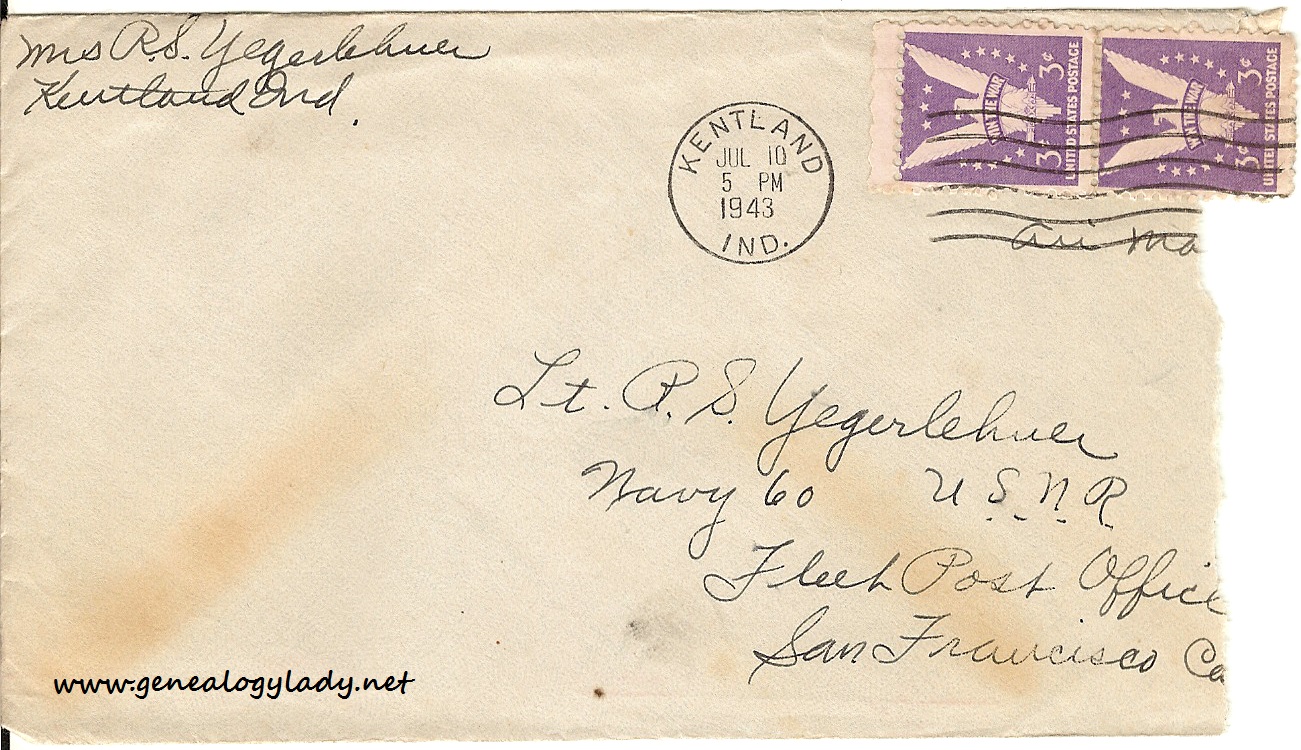 Mrs R.S. Yegerlehner
Kentland Ind.
KENTLAND
JUL 10
5 PM
1943
IND.
WIN THE WAR
3¢ 3¢
UNITED STATES POSTAGE
WIN THE WAR
3¢ 3¢
UNITED STATES POSTAGE
Air Ma
Lt. R. S. Yegerlehner
Navy 60 U.S.N.R
Fleet Post Office
San Francisco Ca
www.genealogylady.net